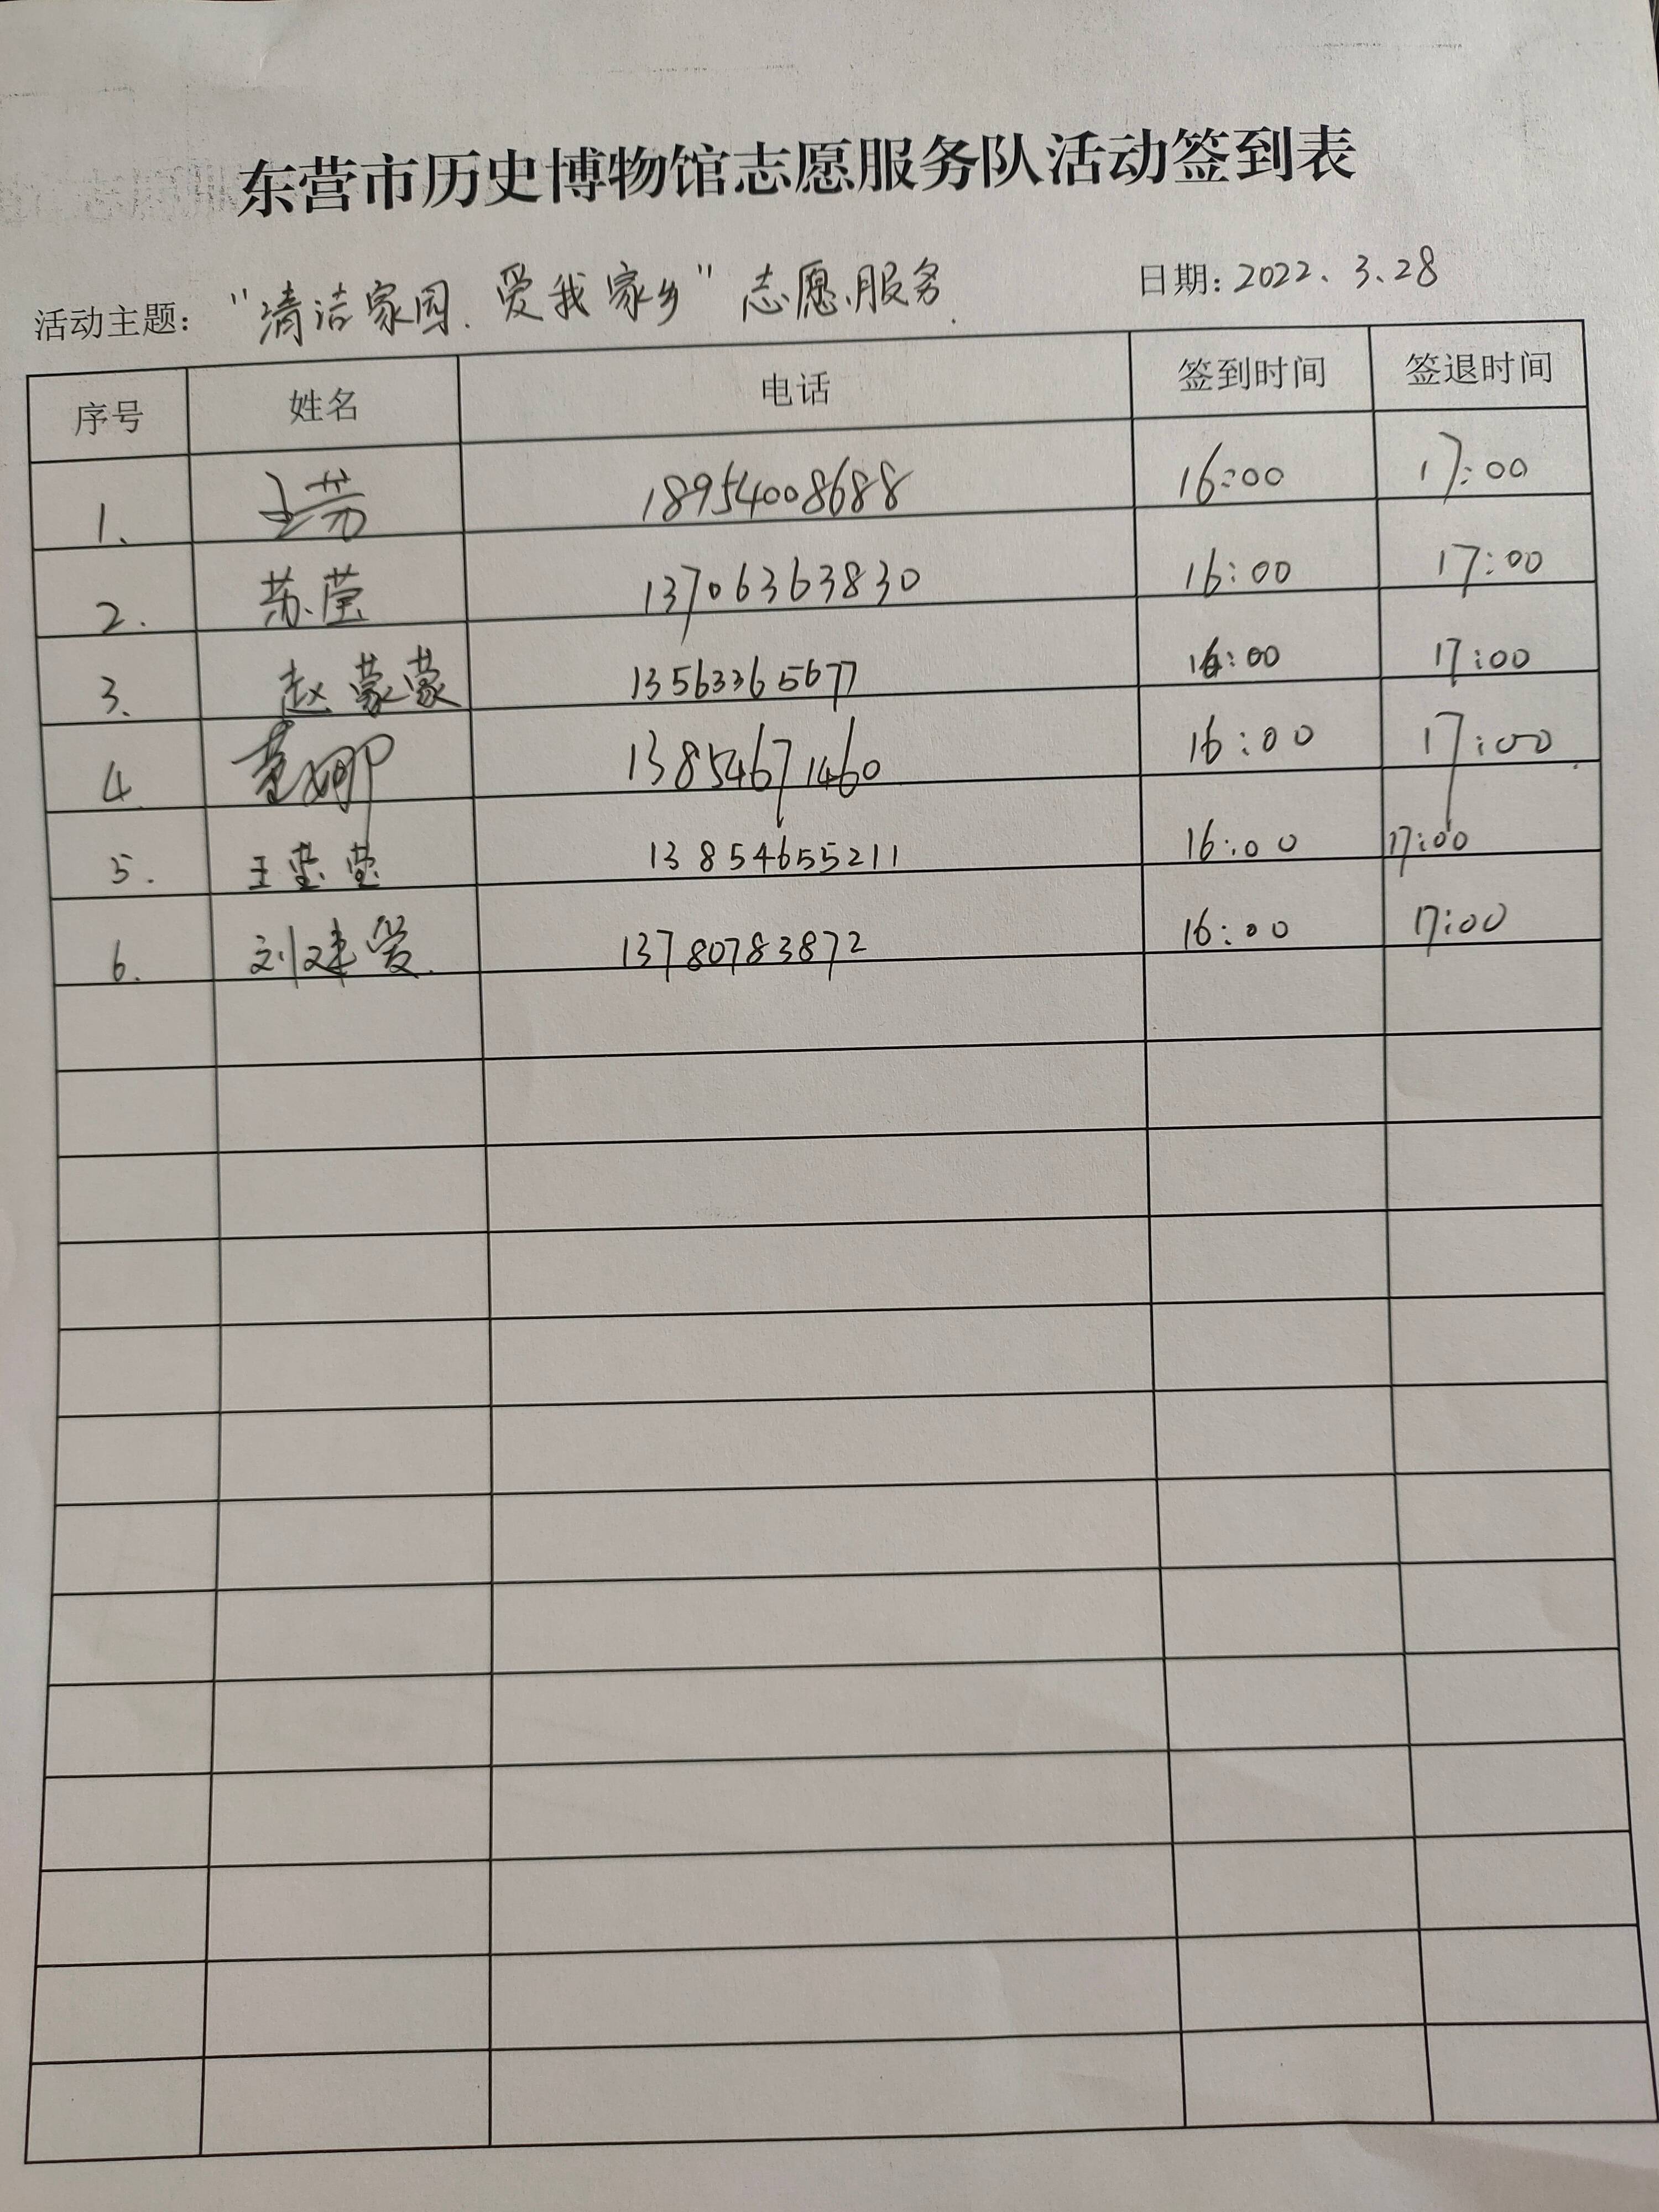 东营市历史博物馆志愿服务队活动签到表
活动主题： "清洁家园、爱我家乡"志愿服务. 日期: 2022、3、28
序号 姓名 电话 签到时间 签退时间
1、 王芳 18954008688 16:00 17:00
2. 苏莹 13706363830 16:00 17:00
3、 赵蒙蒙 13563365677 16:00 17:00
4. 董娜 13854671460 16:00 17:00
5. 王莹莹 13854655211 16:00 17:00
6. 刘建爱. 13780783872 16:00 17:00